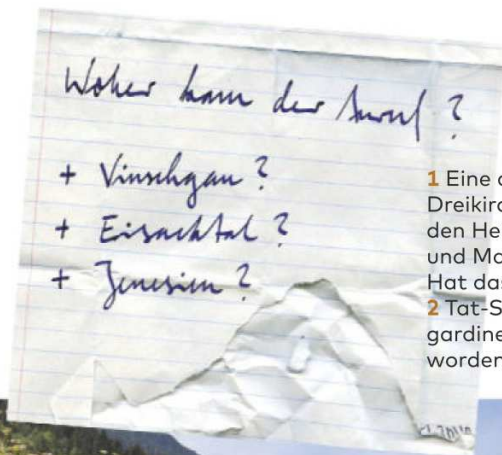 Woher kam der Anruf ?
+ Vinschgau ?
+ Eisacktal ?
+ Jenesien ?
1 Eine
Dreikirc
den He
und Ma
Hat das
2 Tat-S
gardine
worden